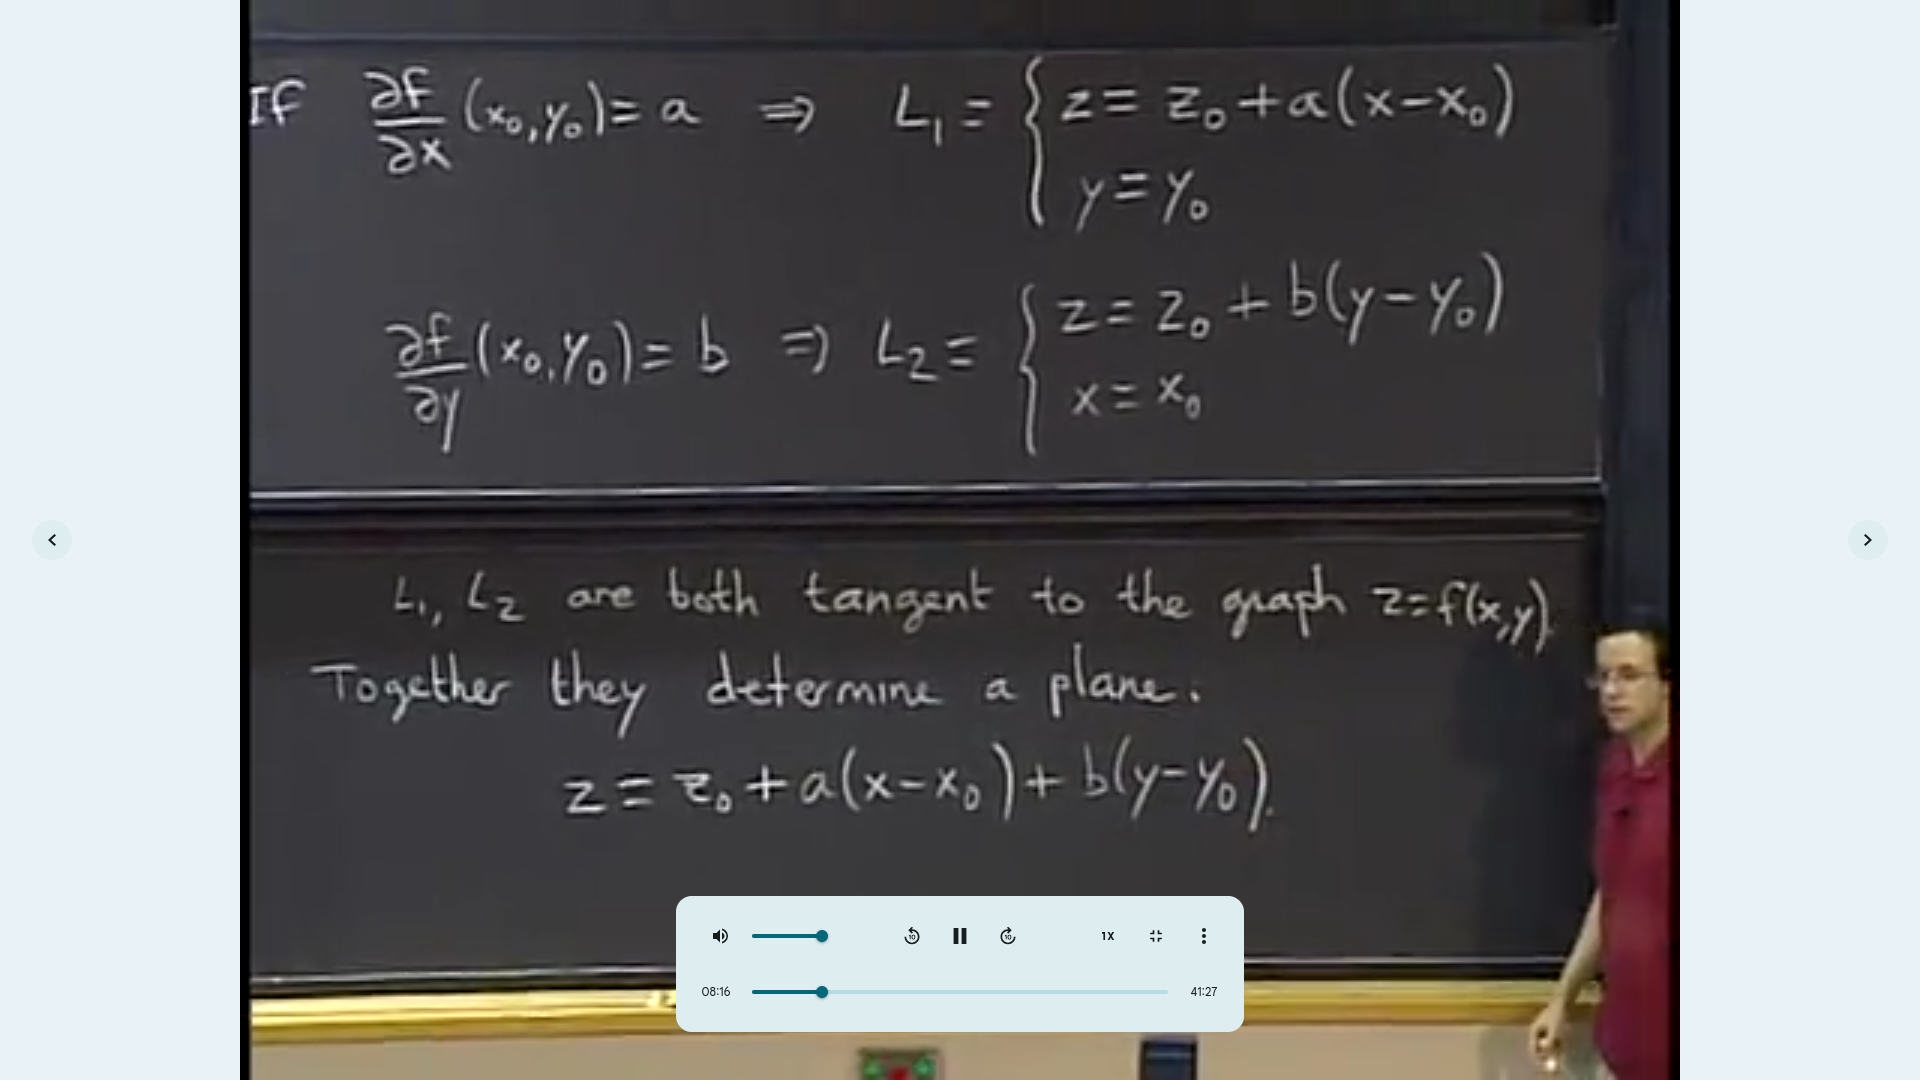 If ∂f/∂x (x₀,y₀) = a ⇒ L₁ = { z = z₀ + a(x-x₀)
y = y₀
∂f/∂y (x₀,y₀) = b ⇒ L₂ = { z = z₀ + b(y-y₀)
x = x₀
L₁, L₂ are both tangent to the graph z=f(x,y).
Together they determine a plane.
z = z₀ + a(x-x₀) + b(y-y₀).
10 10 1X
08:16 41:27